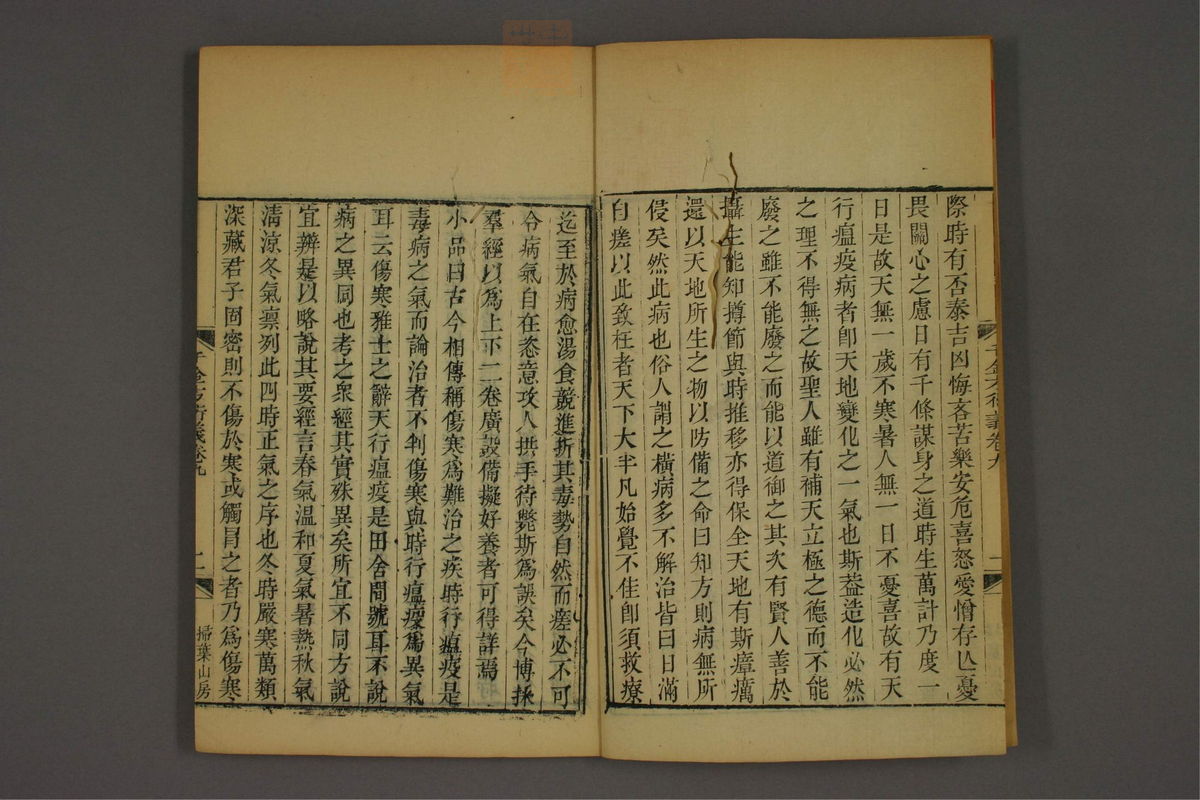 際時有否泰吉凶悔吝苦樂安危喜怒愛憎存亡憂
畏關心之慮日有千條謀身之道時生萬計乃度一
日是故天無一歲不寒暑人無一日不憂喜故有天
行瘟疫病者卽天地變化之一氣也斯葢造化必然
之理不得無之故聖人雖有補天立極之德而不能
廢之雖不能廢之而能以道御之其次有賢人善於
攝生能知撙節與時推移亦得保全天地有斯瘴癘
還以天地所生之物以防備之命曰知方則病無所
侵矣然此病也俗人謂之橫病多不解治皆曰日滿
自瘥以此致枉者天下大半凡始覺不佳卽須救療
迄至於病愈湯食競進折其毒勢自然而瘥必不可
令病氣自在恣意攻人拱手待斃斯爲誤矣今博採
羣經以爲上下二卷廣設備擬好養者可得詳焉
小品曰古今相傳稱傷寒爲難治之疾時行瘟疫是
毒病之氣而論治者不判傷寒與時行瘟疫爲異氣
耳云傷寒雅士之辭天行瘟疫是田舍間號耳不說
病之異同也考之衆經其實殊異矣所宜不同方說
宜辨是以略說其要經言春氣溫和夏氣暑熱秋氣
淸涼冬氣禀列此四時正氣之序也冬時嚴寒萬類
深藏君子固密則不傷於寒或觸冒之者乃爲傷寒
千金方衍義卷九
二
掃葉山房